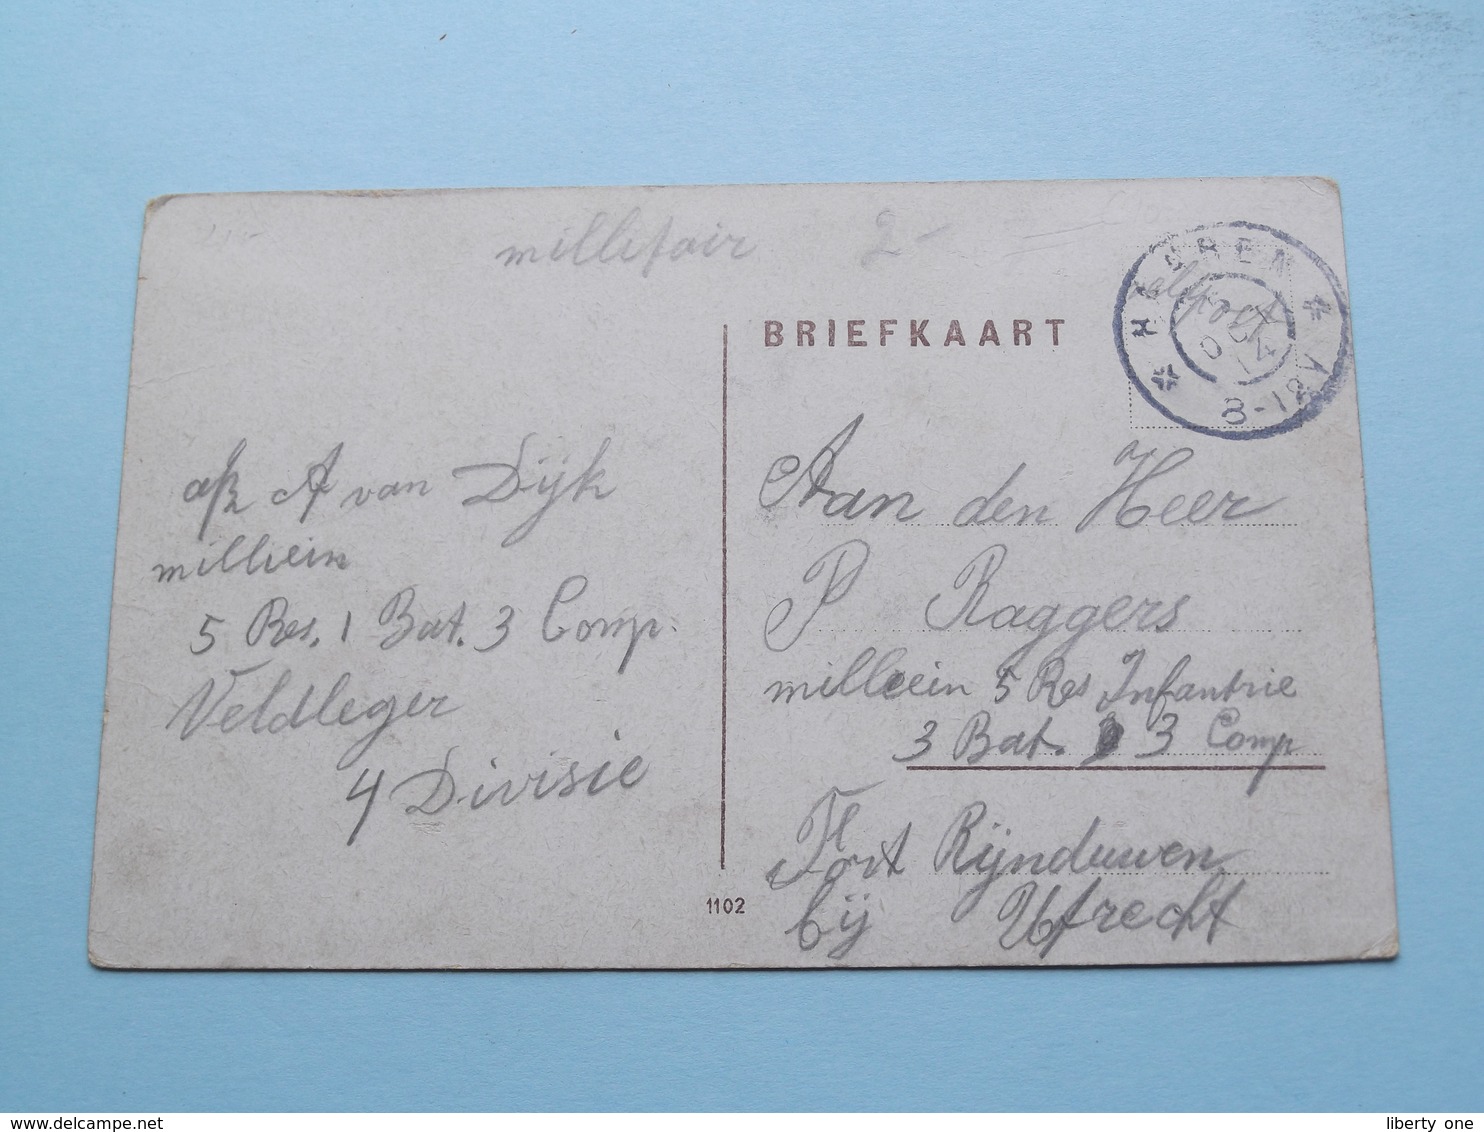 millitair 2-
BRIEFKAART
HAAREN
8-12 V
veldpost
afz A van Dijk
millicin
5 Res. 1 Bat. 3 Comp.
Veldleger
4 Divisie
Aan den Heer
P Raggers
millicein 5 Res Infantrie
3 Bat. 3 Comp
Fort Rijnduwen
bij Utrecht
1102
delcampe.net
liberty one